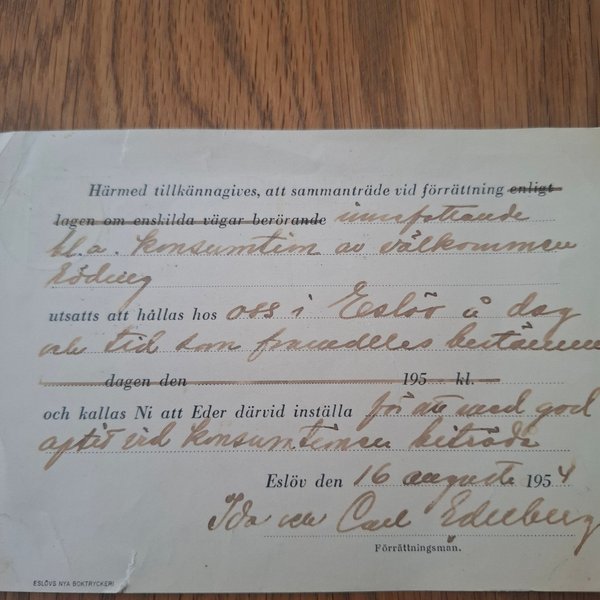 Härmed tillkännagives, att sammanträde vid förrättning enligt
lagen om enskilda vägar berörande innefattande
bl.a. konsumtion av välkommen
röding
utsatts att hållas hos oss i Eslöv å dag
och tid som framdeles bestämmes
dagen den 195 kl.
och kallas Ni att Eder därvid inställa för att med god
aptit vid konsumtionen biträda
Eslöv den 16 augusti 1954
Ida och Carl
Förrättningsman.
ESLÖVS NYA BOKTRYCKERI